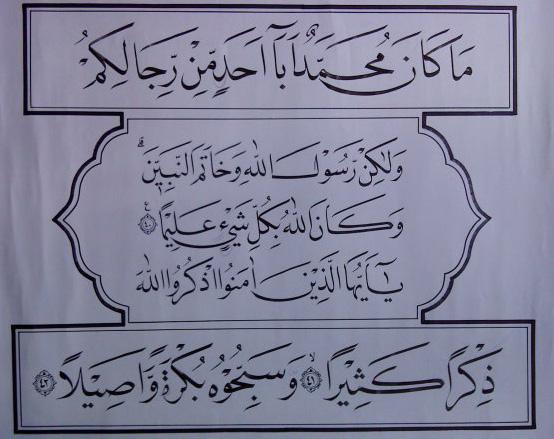 مَا كَانَ مُحَمَّدٌ اَبَآ اَحَدٍ مِّنْ رِّجَالِكُمْ
وَلٰكِنْ رَّسُوْلَ اللّٰهِ وَخَاتَمَ النَّبِيّٖنَ ؕ
وَكَانَ اللّٰهُ بِكُلِّ شَيْءٍ عَلِيْمًا ﴿٤٠﴾ ع
يٰٓاَيُّهَا الَّذِيْنَ اٰمَنُوا اذْكُرُوا اللّٰهَ
ذِكْرًا كَثِيْرًا ﴿٤١﴾ وَّسَبِّحُوْهُ بُكْرَةً وَّاَصِيْلًا ﴿٤٢﴾